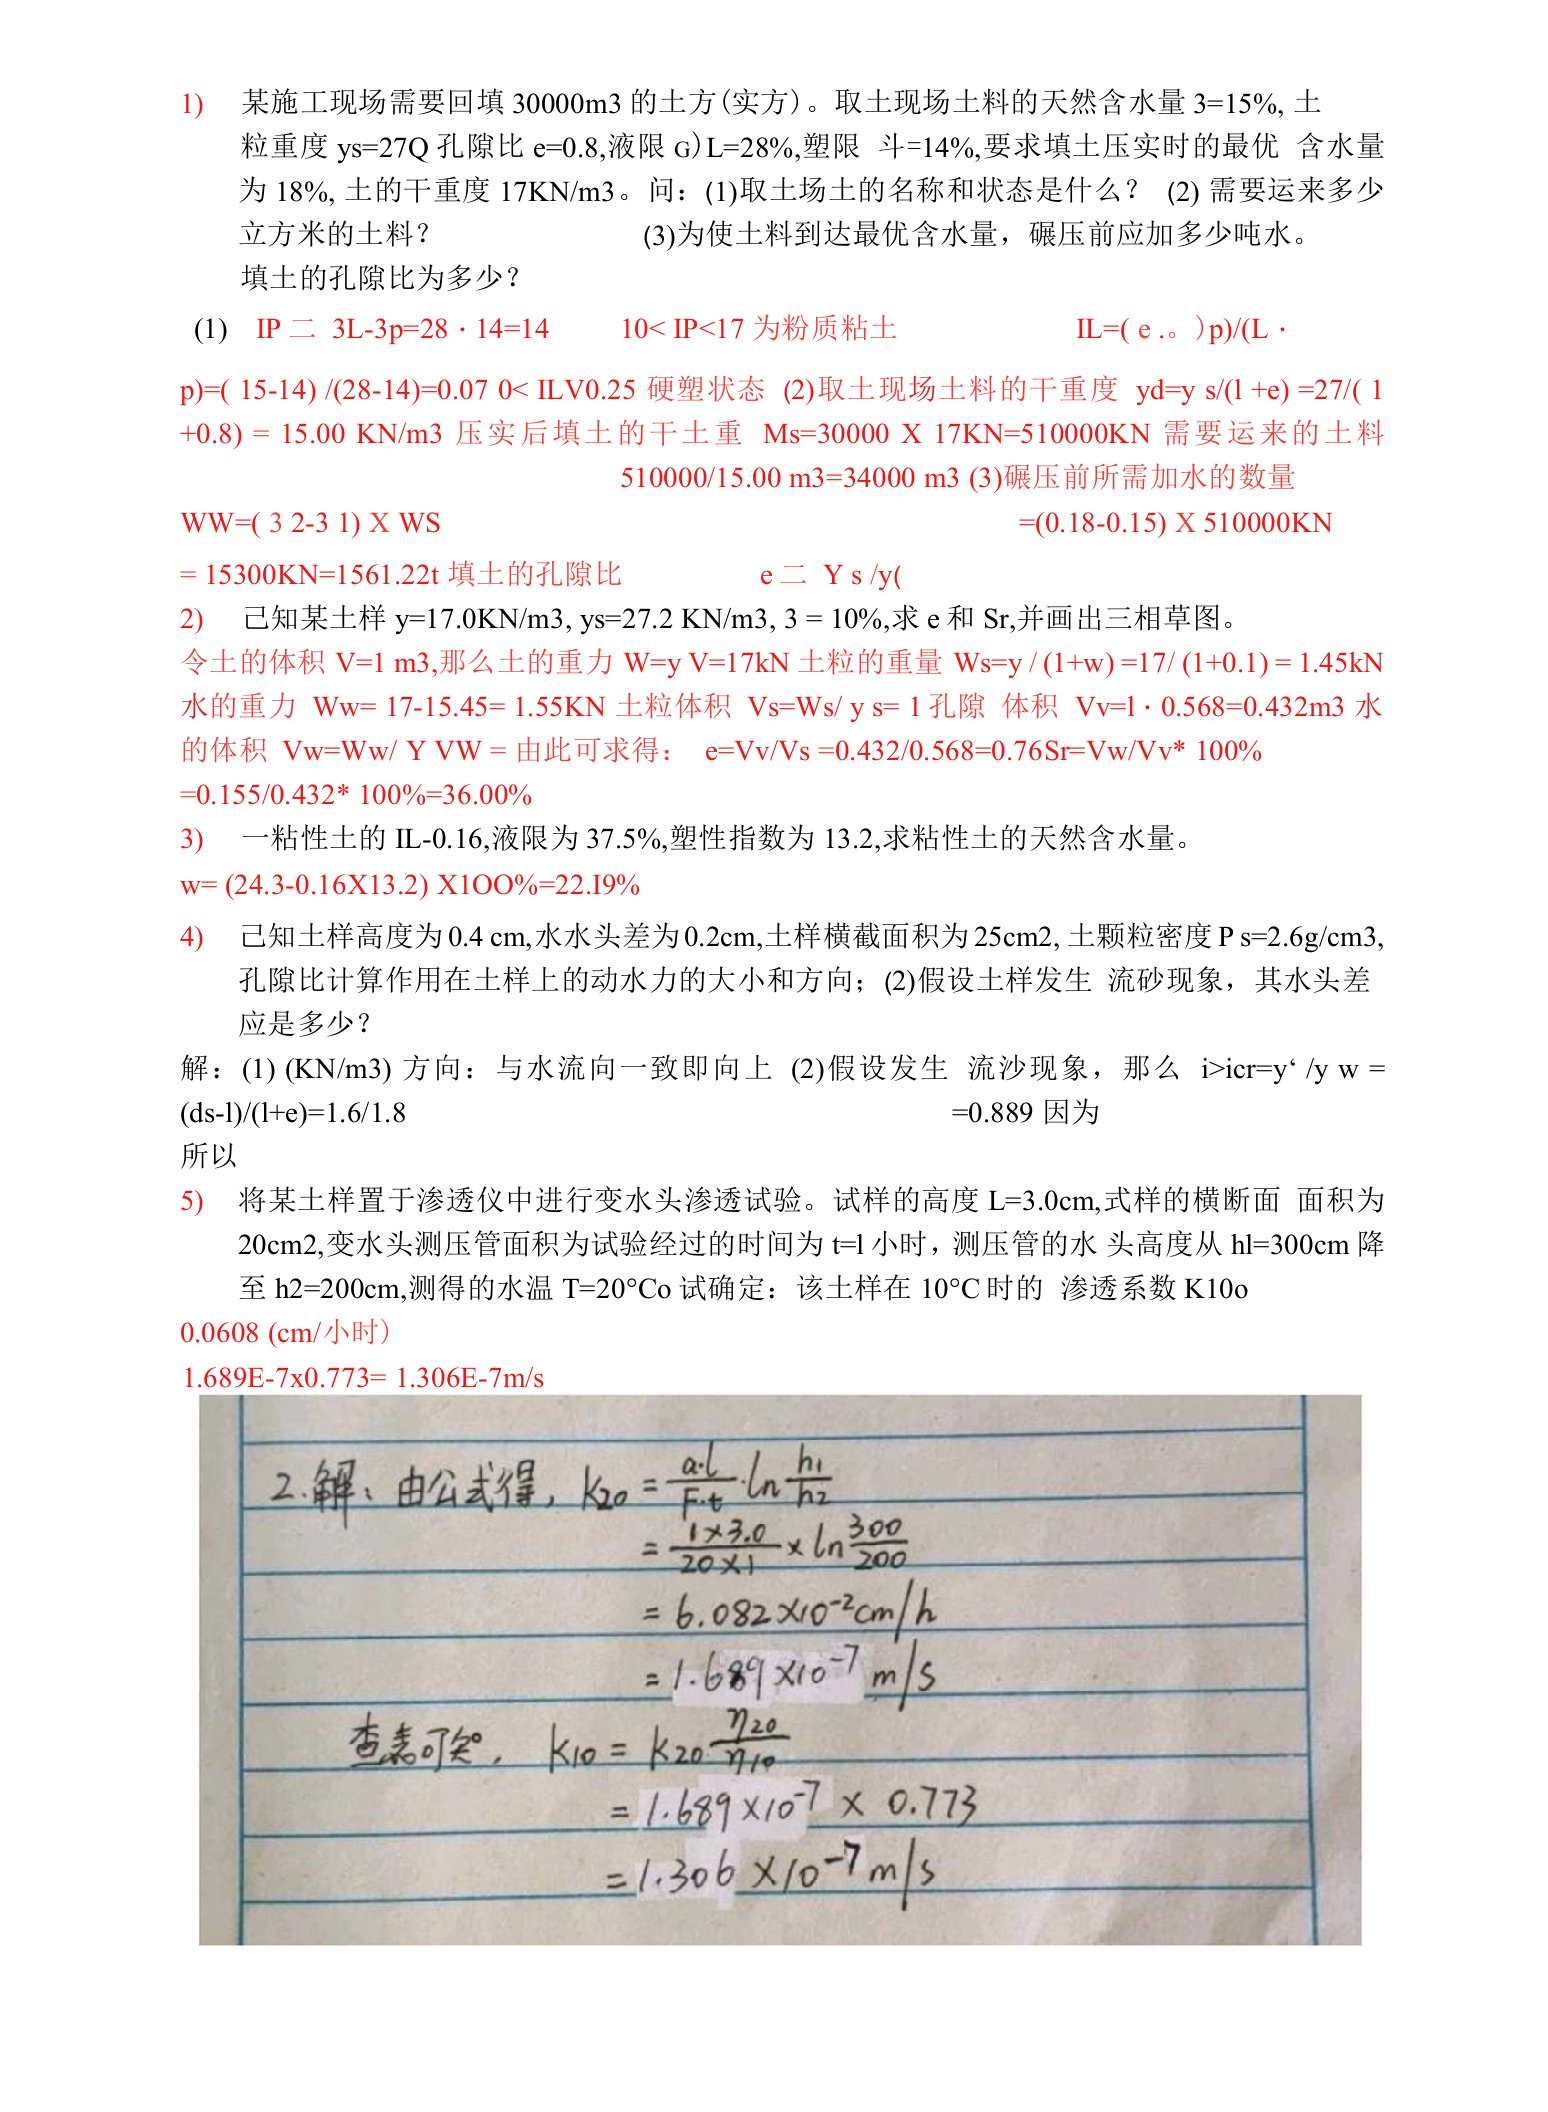 1) 某施工现场需要回填 30000m3 的土方(实方)。取土现场土料的天然含水量 3=15%, 土
粒重度 ys=27Q 孔隙比 e=0.8,液限 G)L=28%,塑限 斗=14%,要求填土压实时的最优 含水量
为 18%, 土的干重度 17KN/m3。问：(1)取土场土的名称和状态是什么？ (2) 需要运来多少
立方米的土料？ (3)为使土料到达最优含水量，碾压前应加多少吨水。
填土的孔隙比为多少？
(1) IP 二 3L-3p=28・14=14 10< IP<17 为粉质粘土 IL=( e .。）p)/(L・
p)=( 15-14) /(28-14)=0.07 0< ILV0.25 硬塑状态 (2)取土现场土料的干重度 yd=y s/(l +e) =27/( 1
+0.8) = 15.00 KN/m3 压实后填土的干土重 Ms=30000 X 17KN=510000KN 需要运来的土料
510000/15.00 m3=34000 m3 (3)碾压前所需加水的数量
WW=( 3 2-3 1) X WS =(0.18-0.15) X 510000KN
= 15300KN=1561.22t 填土的孔隙比 e 二 Y s /y(
2) 己知某土样 y=17.0KN/m3, ys=27.2 KN/m3, 3 = 10%,求 e 和 Sr,并画出三相草图。
令土的体积 V=1 m3,那么土的重力 W=y V=17kN 土粒的重量 Ws=y / (1+w) =17/ (1+0.1) = 1.45kN
水的重力 Ww= 17-15.45= 1.55KN 土粒体积 Vs=Ws/ y s= 1 孔隙 体积 Vv=l・0.568=0.432m3 水
的体积 Vw=Ww/ Y VW = 由此可求得： e=Vv/Vs =0.432/0.568=0.76Sr=Vw/Vv* 100%
=0.155/0.432* 100%=36.00%
3) 一粘性土的 IL-0.16,液限为 37.5%,塑性指数为 13.2,求粘性土的天然含水量。
w= (24.3-0.16X13.2) X1OO%=22.I9%
4) 己知土样高度为 0.4 cm,水水头差为 0.2cm,土样横截面积为 25cm2, 土颗粒密度 P s=2.6g/cm3,
孔隙比计算作用在土样上的动水力的大小和方向；(2)假设土样发生 流砂现象，其水头差
应是多少？
解：(1) (KN/m3) 方向：与水流向一致即向上 (2)假设发生 流沙现象，那么 i>icr=y‘ /y w =
(ds-l)/(l+e)=1.6/1.8 =0.889 因为
所以
5) 将某土样置于渗透仪中进行变水头渗透试验。试样的高度 L=3.0cm,式样的横断面 面积为
20cm2,变水头测压管面积为试验经过的时间为 t=l 小时，测压管的水 头高度从 hl=300cm 降
至 h2=200cm,测得的水温 T=20°Co 试确定：该土样在 10°C 时的 渗透系数 K10o
0.0608 (cm/小时）
1.689E-7x0.773= 1.306E-7m/s
2.解：由公式得， k20 = a·l/F·t ·ln h1/h2
= 1×3.0/20×1 × ln 300/200
= 6.082×10-2cm/h
= 1.689×10-7 m/s
查表可知， k10 = k20 η20/η10
= 1.689×10-7 × 0.773
= 1.306×10-7m/s